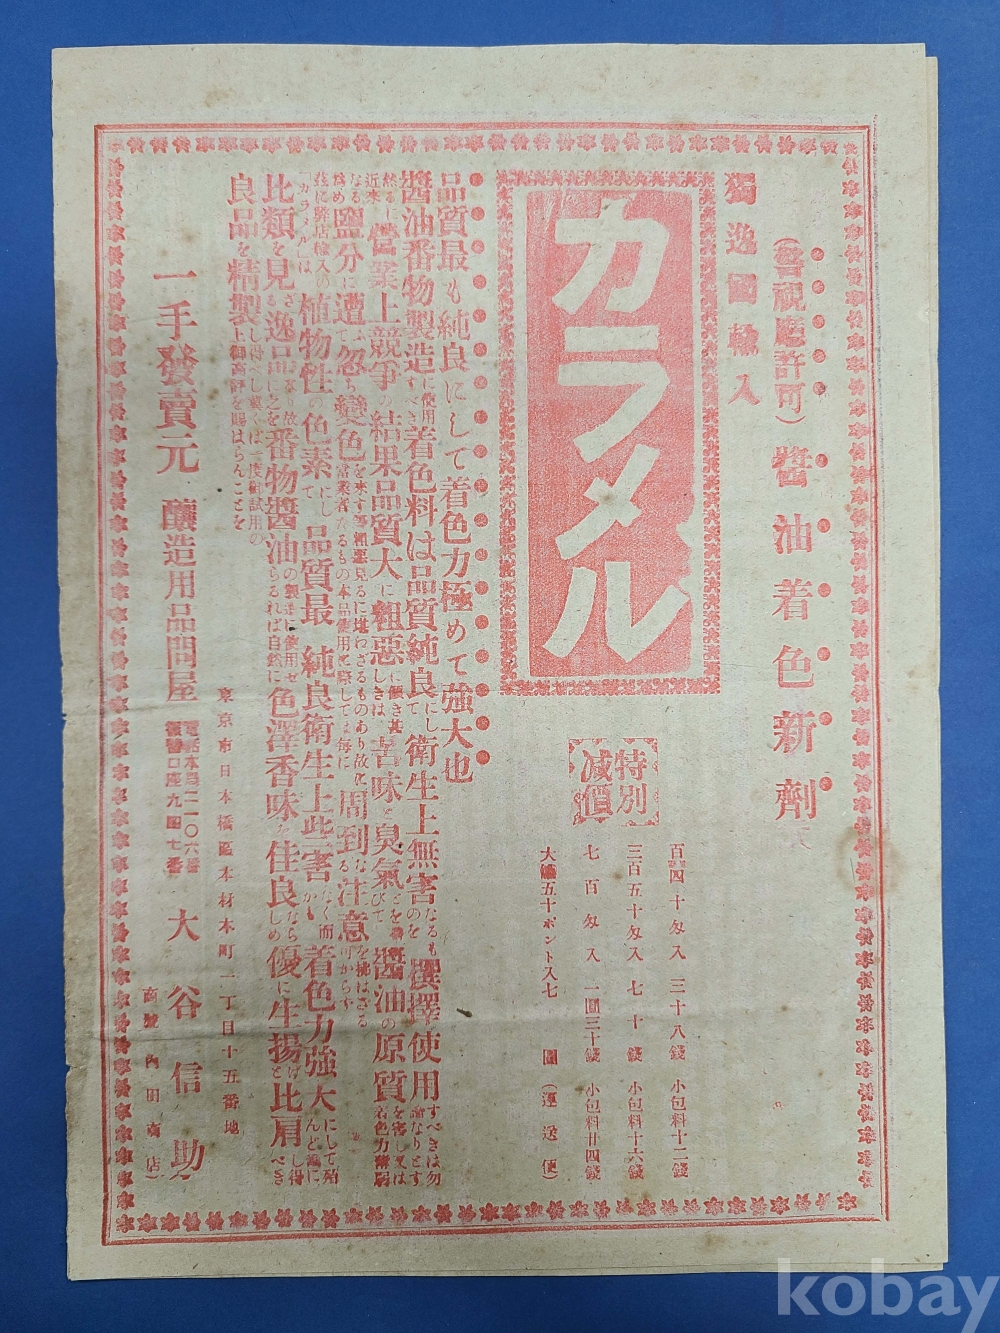 (警視廳許可)醬油着色新劑
獨逸國輸入
カラメル
特別
減價
百四十匁入 三十八錢 小包料十二錢
三百五十匁入 七十錢 小包料十六錢
七百匁入 一圓三十錢 小包料廿四錢
大罐五十ポンド入 七圓 (運送便)
品質最も純良にして着色力極めて強大也
醬油番物製造に使用すべき着色料は品質純良にして衛生上無害なるものを撰擇使用すべきは勿論なりとす
然るに近來營業上競爭の結果品質大に粗惡に傾き甚しきは苦味と臭氣とを帶びて醬油の原質を害し又は着色力薄弱
なる爲め鹽分に遭て忽ち變色を來す等粗惡見るに堪わざるものあり故に當業者たるもの本品使用に際しては每に周到なる注意を拂はざる可からず
茲に弊店輸入の「カラメル」は植物性の色素にして品質最純良衛生上些害なく而かも着色力強大にして殆んど他に
比類を見ざる逸品なり依之を番物醬油の製造に使用せらるれば自然に色澤香味を佳良ならしめ優に生揚げと比肩し得べき
良品を精製し得べし冀くば一度御試用の上御高評を賜はらんことを
東京市日本橋區本材木町一丁目十五番地
一手發賣元 釀造用品問屋 大谷信助
電話本局二一〇六番
振替口座九四七番
商號 內田商店)
kobay